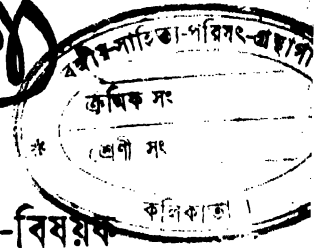 বঙ্গীয়-সাহিত্য-পরিষৎ-গ্রন্থাগা
ক্রমিক সং
শ্রেণী সং
কলিকাতা ।
-বিষয়ক